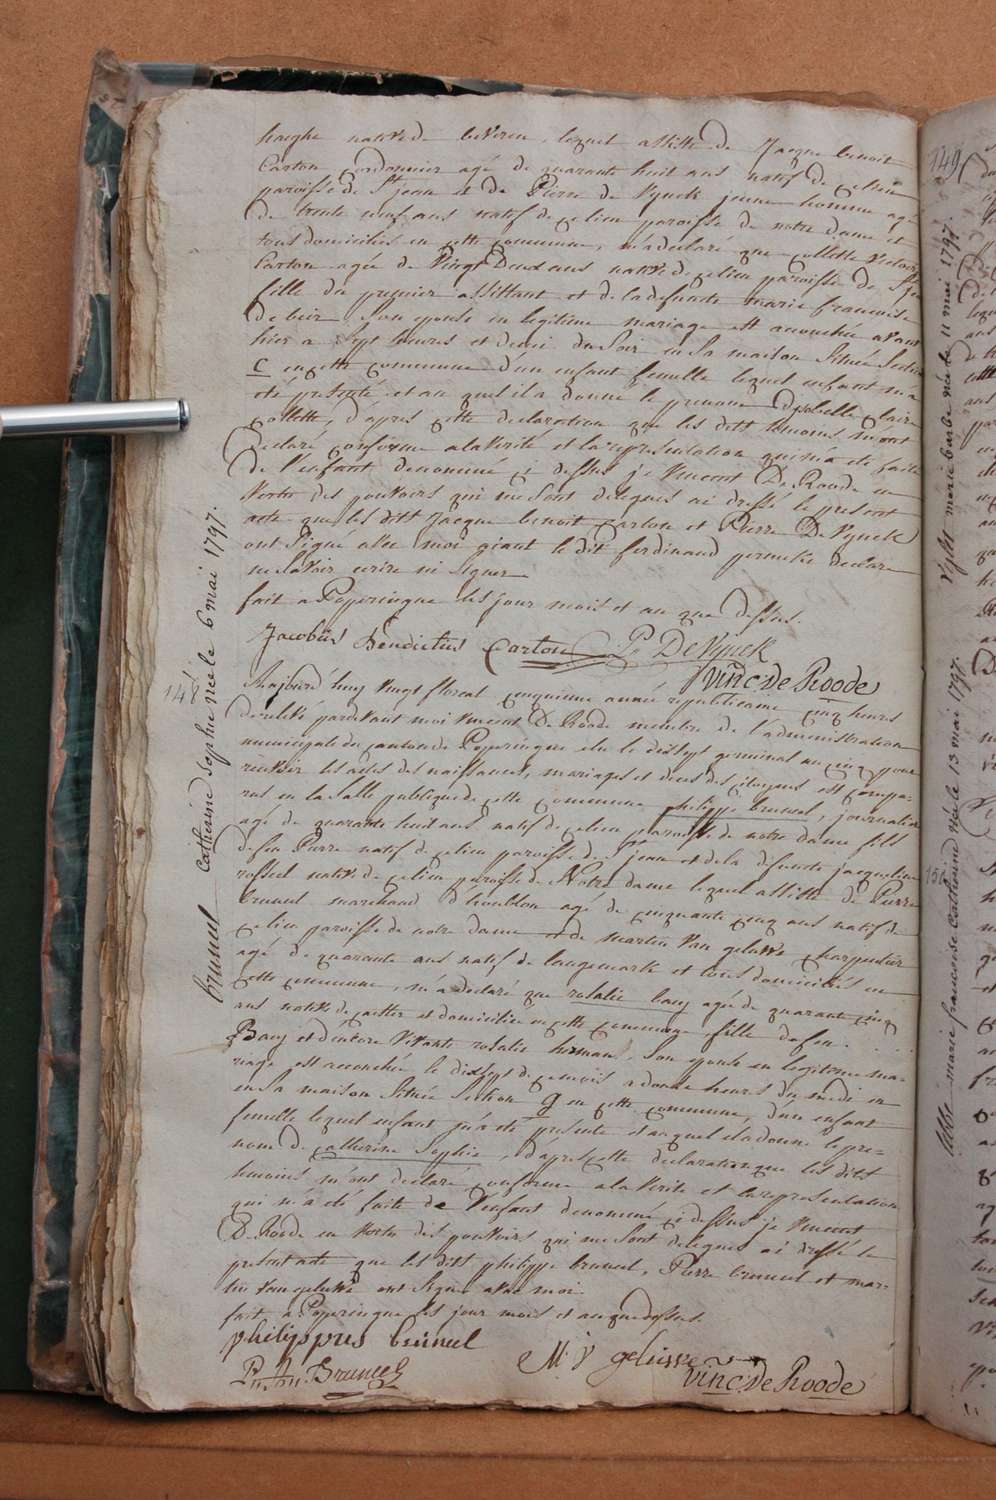 haeghe native de beveren, lequel assiste de Jacque benoit
Carton Cordonnier agé de quarante huit ans natif de ce lieu
paroisse de St jean et de Pierre De Vynck jeune homme agé
de trente neuf ans natif de ce lieu paroisse de notre dame et
tous domiciliés en cette commune, m'a declaré que collette victoire
Carton agée de Vingt Deux ans native de ce lieu paroisse de St jean
fille du premier assistant et de la defuncte marie francoise
de beir, son epouse en legitime mariage est accouchée avant
hier a sept heures et demi du soir en sa maison située section
C en cette commune d'un enfant femelle lequel enfant m'a
été presenté et au quel il a donné le prenom d'isabelle claire
collette, d'apres cette declaration que les dits temoins m'ont
declaré conforme a la verité et la representation qui m'a été faite
de l'enfant denommé ci dessus je Vincent De Roode en
vertu des pouvoirs qui me sont delegués ai dressé le present
acte que les dits Jacque benoit Carton et Pierre De Vynck
ont signé avec moi ayant le dit ferdinand declaré
ne savoir ecrire ni signer
fait a Poperingue les jour mois et an que dessus.
Jacobus Benedictus Carton P. De Vynck
vinc: De Roode
148
brunel Catherine Sophie née le 6 mai 1797.
Aujourd'huy vingt floreal cinquieme année republicaine cinq heures
de relevé pardevant moi vincent De Roode membre de l'administration
municipale du canton de Poperingue elu le dixsept germinal an cinq pour
recevoir les actes des naissances, mariages et deces des citoyens est compa-
rus en la salle publique de cette commune philippe brunel, journalier
agé de quarante huit ans natif de ce lieu paroisse de notre dame fils
de feu Pierre natif de ce lieu paroisse de St jean et de la defuncte jacqueline
rossel native de ce lieu paroisse de Notre dame lequel assiste de Pierre
brunel marchand d'houblon agé de cinquante cinq ans natif de
ce lieu paroisse de notre dame et de martin Van geluwe charpentier
agé de quarante ans natif de langemark et tous domiciliés en
cette commune, m'a declaré que rosalie baey agée de quarante cinq
ans native de et domiciliée en cette commune fille de feu . . . .
Baey et d'encore vivante rosalie herman, son epouse en legitime ma-
riage est accouchée le dixsept de ce mois a douze heures du midi en
en sa maison située section G en cette commune, d'un enfant
femelle lequel enfant m'a été presenté et au quel il a donné le pre-
nom de Catherine Sophie, d'apres cette declaration que les dits
temoins m'ont declaré conforme a la verité et la representation
qui m'a été faite de l'enfant denommé ci dessus je Vincent
De Roode en vertu des pouvoirs qui me sont delegués ai dressé le
present acte que les dits philippe brunel, Pierre brunel et mar-
tin van geluwe ont signé avec moi.
fait a Poperingue les jour mois et an que dessus.
philippus brunel
Brunel M. v geluwe
vinc: De Roode
149
marie barbe née le 11 mai 1797.
marie francoise Catherine née le 13 mai 1797.